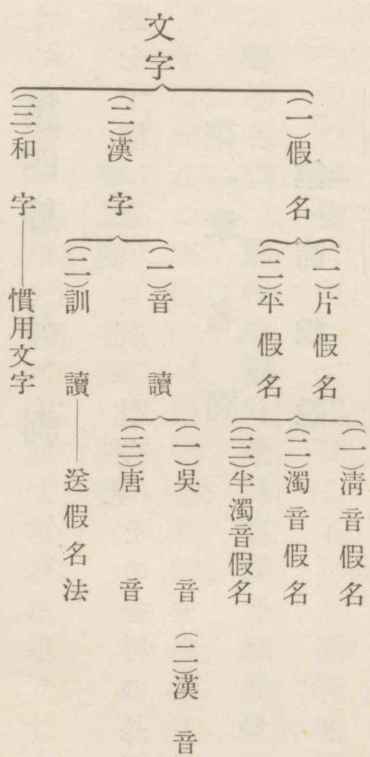 文字
(一)假名
(一)片假名
(二)平假名
(一)淸音假名
(二)濁音假名
(三)半濁音假名
(二)漢字
(一)音讀
(一)吳音 (二)漢音
(三)唐音
(二)訓讀——送假名法
(三)和字——慣用文字